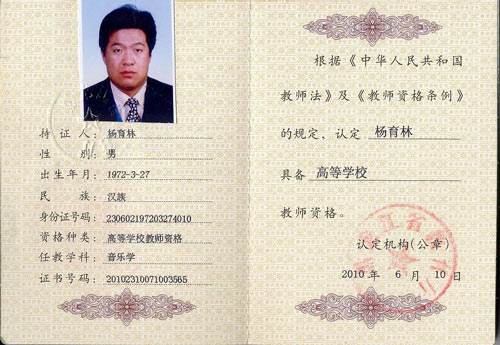 持证人：杨育林
性别：男
出生年月：1972-3-27
民族：汉族
身份证号码：230602197203274010
资格种类：高等学校教师资格
任教学科：音乐学
证书号码：20102310071003565
根据《中华人民共和国
教师法》及《教师资格条例》
的规定，认定 杨育林
具备 高等学校
教师资格。
认定机构(公章)
2010 年 6 月 10 日